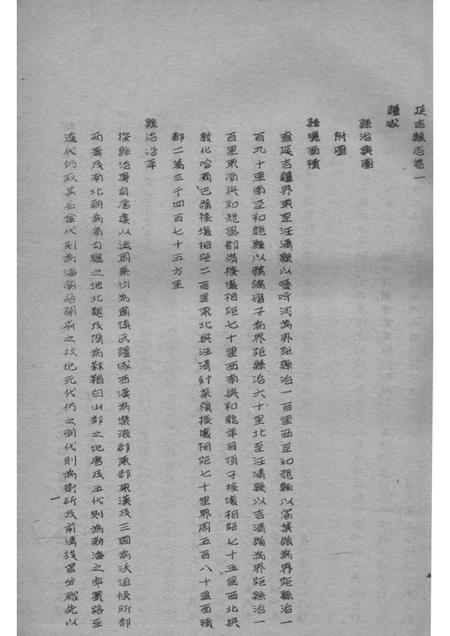 延吉縣志卷一
疆域
縣治輿圖
附圖
縣境面積
查延吉疆界東至汪清縣以嘎呀河為界距縣治一百里西至和龍縣以窩集嶺為界距縣治一
百九十里南至和龍縣以 子為界距縣治六十里北至汪清縣以吉清嶺為界距縣治一
百里東南與和龍 嶺接壤相距七十里西南與和龍羊目頂子接壤相距七十五里西北與
敦化哈爾巴嶺接壤相距二百里東北與汪清 嶺接壤相距七十里界周五百八十里面積
都二萬三千四百七十五方里
縣治沿革
按縣治 自唐虞以迄周秦均為肅慎氏疆域西漢為樂浪郡東部東漢及三國為沃沮候所部
兩晉及南北朝為高句驪之地北魏及隋為靺鞨白山部之地唐及五代則為渤海之率賓路至
遼代仍取其名金代則為海蘭路 府之故地元代仍之明代則為衛所及前清設官分職先以
一